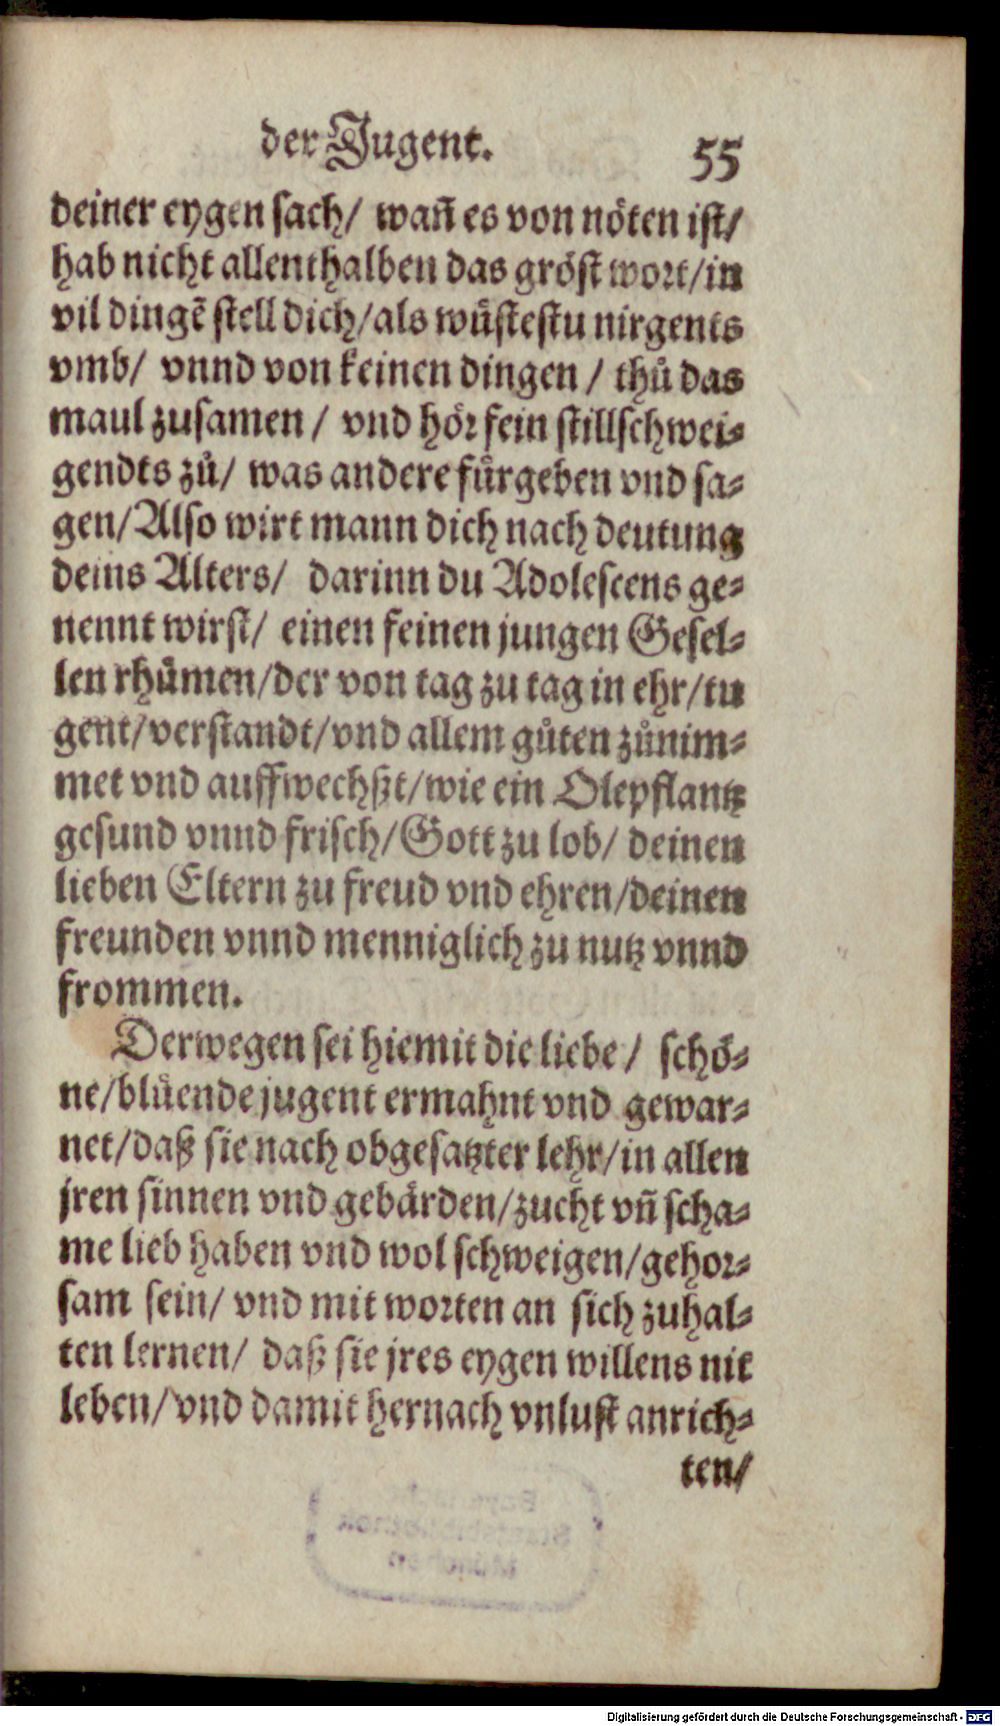 der Jugent.
55
deiner eygen sach/ wañ es von nöten ist/
hab nicht allenthalben das gröst wort/in
vil dingẽ stell dich/als wüstestu nirgents
vmb/ vnnd von keinen dingen / thů das
maul zusamen / vnd hör fein stillschwei⸗
gendts zů/ was andere fürgeben vnd sa⸗
gen/Also wirt mann dich nach deutung
deins Alters/ darinn du Adolescens ge⸗
nennt wirst/ einen feinen jungen Gesel⸗
len rhümen/der von tag zu tag in ehr/tu
gent/verstandt/vnd allem gůten zůnim⸗
met vnd auffwechßt/wie ein Olepflantz
gesund vnnd frisch/Gott zu lob/ deinen
lieben Eltern zu freud vnd ehren/deinen
freunden vnnd menniglich zu nutz vnnd
frommen.
Derwegen sei hiemit die liebe / schö⸗
ne/blüende jugent ermahnt vnd gewar⸗
net/daß sie nach obgesatzter lehr/in allen
jren sinnen vnd gebärden/zucht vñ scha⸗
me lieb haben vnd wol schweigen/gehor⸗
sam sein/ vnd mit worten an sich zuhal⸗
ten lernen/ daß sie jres eygen willens nit
leben/vnd damit hernach vnlust anrich⸗
ten/
Bayerische
Staatsbibliothek
München
Digitalisierung gefördert durch die Deutsche Forschungsgemeinschaft - DFG